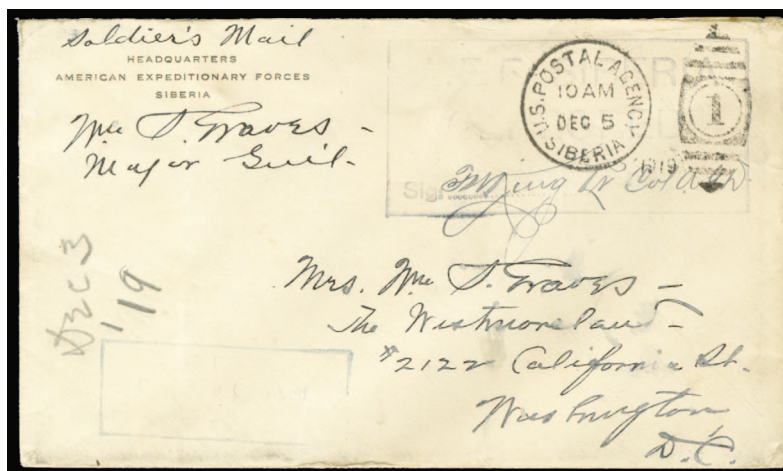 Soldier's Mail
HEADQUARTERS
AMERICAN EXPEDITIONARY FORCES
SIBERIA
Wm S. Graves -
Major Genl.
U.S. POSTAL AGENCY
10 AM
DEC 5
SIBERIA
1919
1
Sig
DEC 3
19
Mrs. Wm S. Graves -
The Westmoreland -
#2122 California St.
Washington,
D.C.